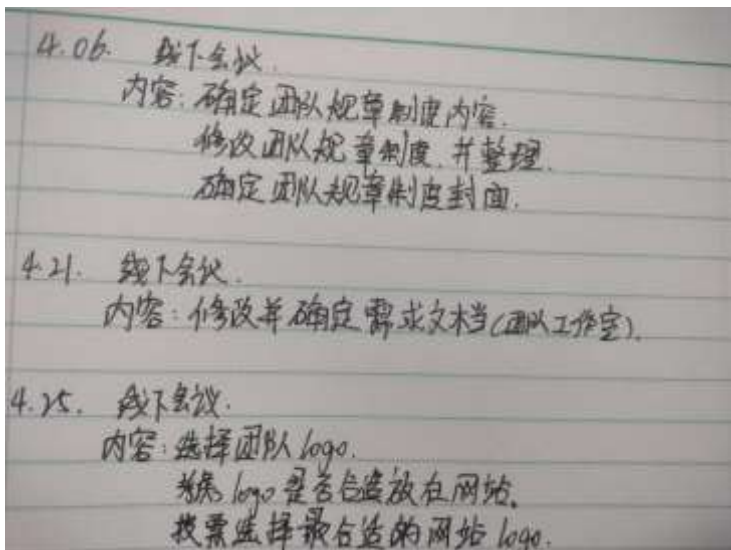 4.06. 线下会议.
内容: 确定团队规章制度内容.
修改团队规章制度, 并整理.
确定团队规章制度封面.
4.21. 线下会议.
内容: 修改并确定需求文档(团队工作室).
4.25. 线下会议.
内容: 选择团队logo.
logo是否合适放在网站.
投票选择最合适的网站logo.